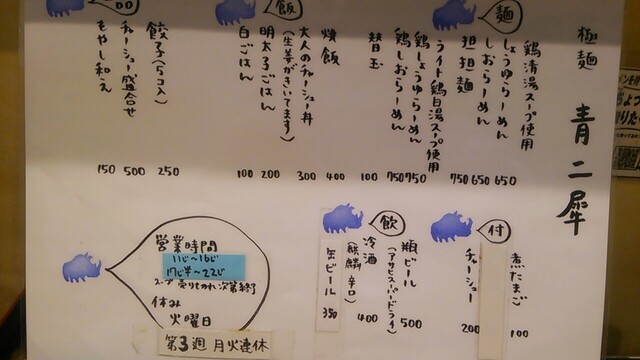 極麺 青二犀
麺
鶏清湯スープ使用
しょうゆらーめん 650
しおらーめん 650
担担麺 750
ライト鶏白湯スープ使用
鶏しょうゆらーめん 750
鶏しおらーめん 750
替玉 100
飯
焼飯 400
大人のチャーシュー丼 300
(生姜がきいてます)
明太子ごはん 200
白ごはん 100
品
餃子(5コ入) 250
チャーシュー盛合せ 500
もやし和え 150
付
煮たまご 100
チャーシュー 200
飲
瓶ビール 500
(アサヒスーパードライ)
冷酒 400
(麒麟辛口)
缶ビール 350
営業時間
11じ〜16じ
17じ半〜22じ
スープ売りきれ次第終了
休み
火曜日
第3週 月火連休